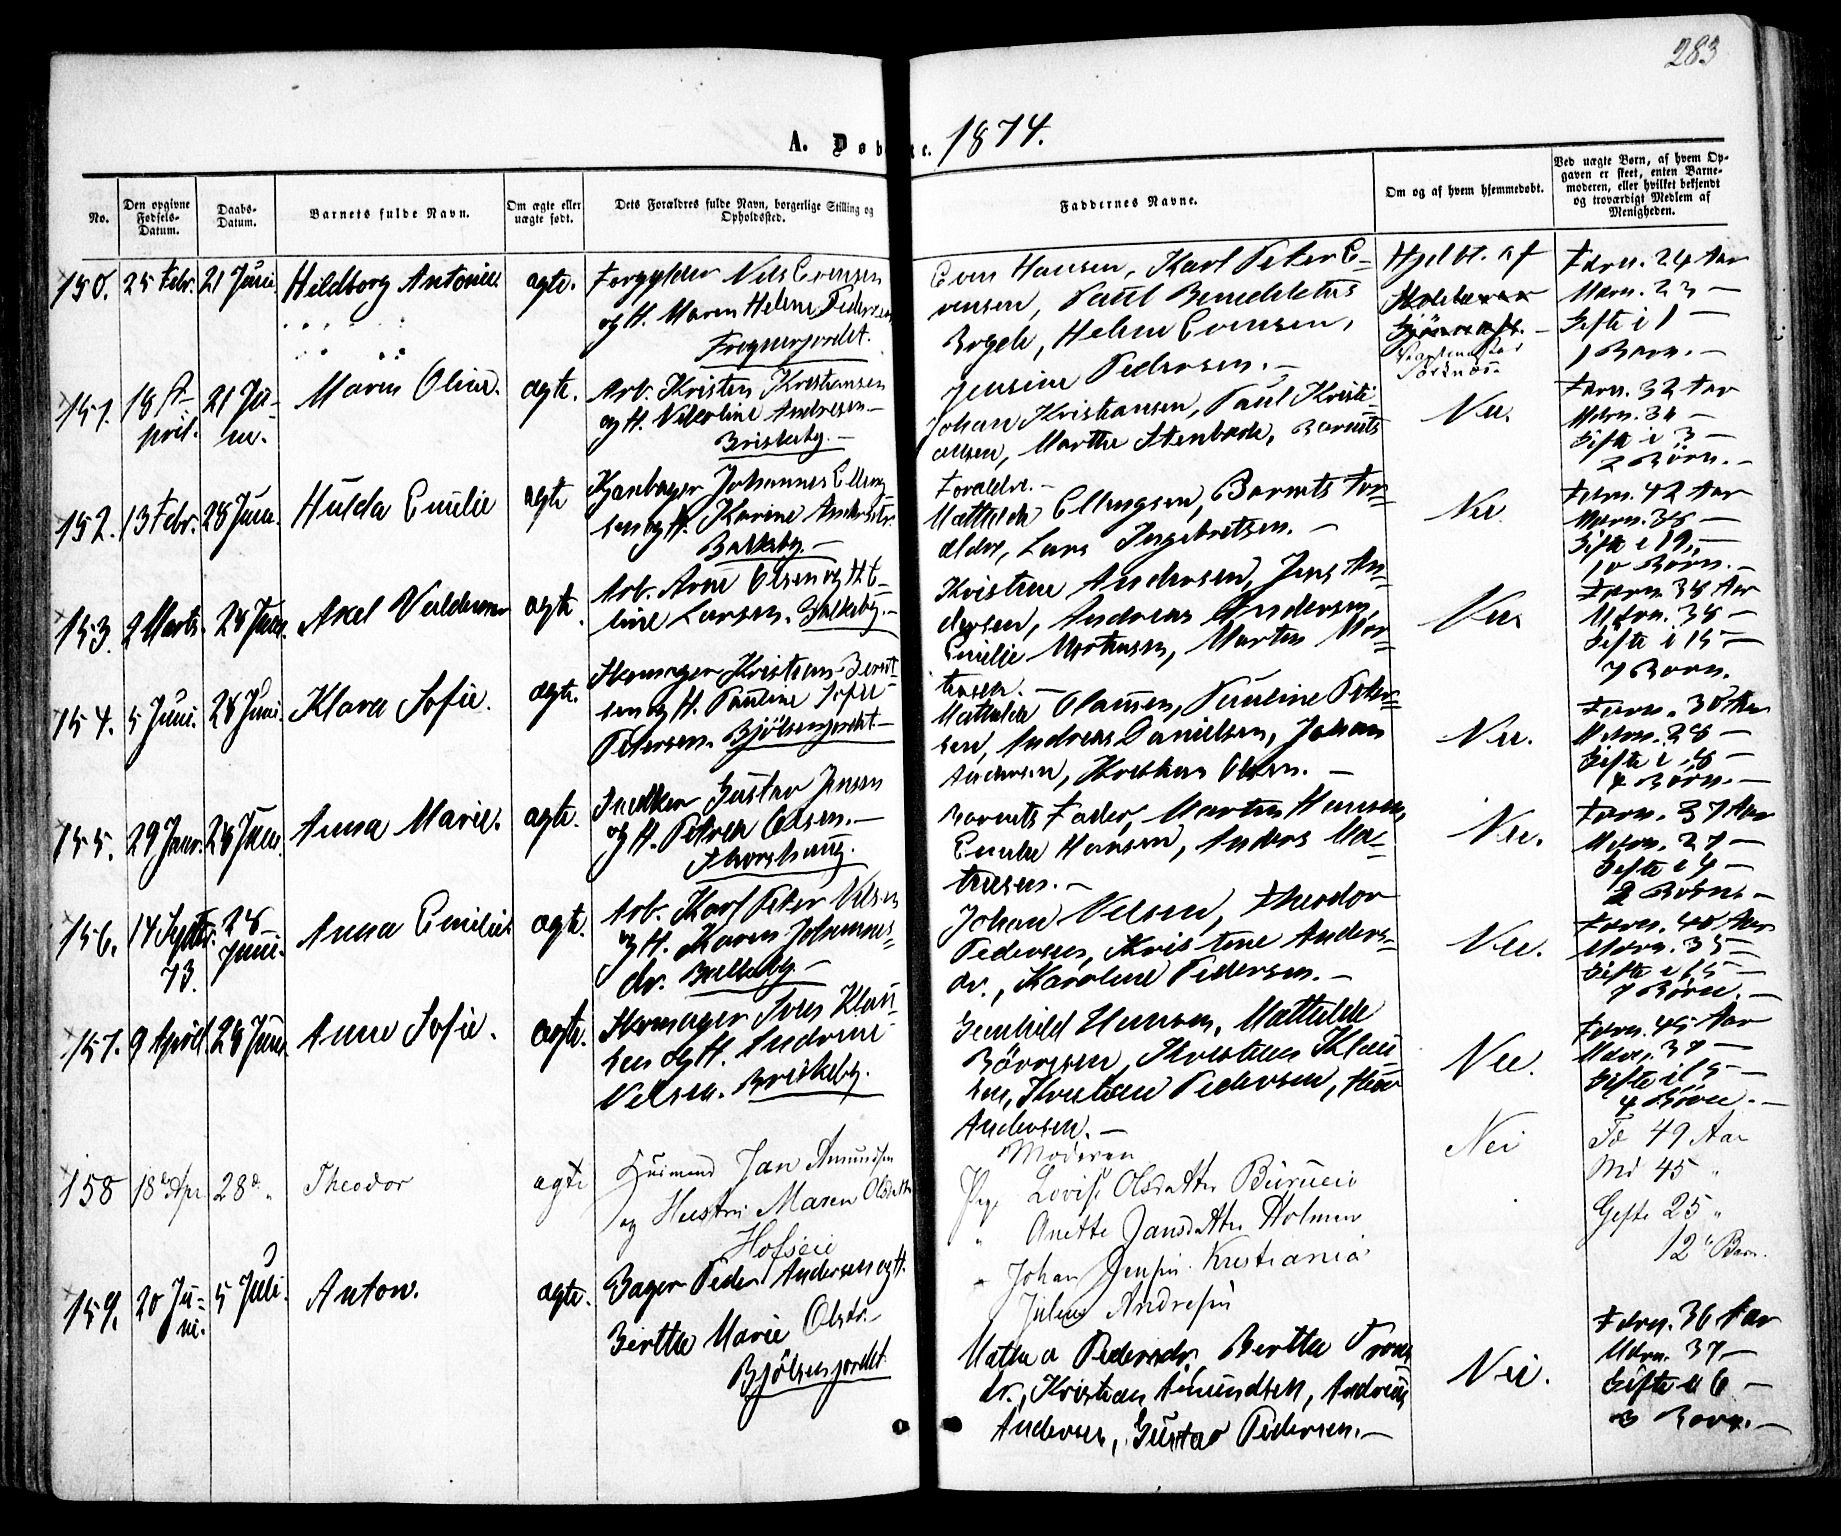 283
A. Døbte. 1874.
No.
Den opgivne Fødsels-Datum.
Daabs-Datum.
Barnets fulde Navn.
Om ægte eller uægte født.
Dets Forældres fulde Navn, borgerlige Stilling og Opholdssted.
Faddernes Navne.
Om og af hvem hjemmedøbt.
Ved uægte Børn, af hvem Opgaven er skeet, enten Barnemoderen, eller hvilket bekjendt og troværdigt Medlem af Menigheden.
150. 25 Febr. 21 Juni Hildborg Antonie ægte.
Forgylder Nils Evensen
og H. Maren Helene Pedersen
Frognerjordet.
Even Hansen, Karl Peter E-
vensen, Paul Benediktus
Helene Evensen,
Jensine Pedersen. —
Hjdbt. af
Færn. 24 Aar
Mørn. 23 —
Gifte i 1 —
1 Barn. —
151. 18 A-
pril. 21 Ju-
ni. Maren Oline. ægte.
Arb. Kristen Kristiansen
og H. Andresen —
Briskeby. —
Johan Kristiansen, Paul Kristi-
ansen, Marthe Stenbæck, Barnets
Forældre. —
Nei.
Færn. 32 Aar
Gifte i 3 —
2 Børn. —
152. 13 Febr. 28 Juni Hulda Emilie ægte
Johannes Elling
sen og H. Karine Andersdtr.
Balkeby. —
Mathilde Ellingsen, Barnets For-
ældre, Lars Ingebretsen. —
Nei
Færn. 42 Aar
Mørn. 38 —
Gifte i 19 —
10 Børn. —
153. 2 Marts. 28 Juni. Axel Valdemar ægte.
Arb. Arne Olsen og H. E-
line Larsen. Balkeby. —
Kristine Andersen, Jens An-
dersen, Andreas Andersen,
Emilie Mortensen, Martin Mor-
tensen. —
Nei
Færn. 38 Aar
Mørn. 38 —
Gifte i 15 —
7 Børn.
154. 5 Juni. 28 Juni. Klara Sofie. ægte.
Skomager Kristian Bernt-
sen og H. Pauline Sofie
Petersen. Bjølsenjordet —
Mathilde Olausen, Pauline Peter-
sen, Andreas Danielsen, Johan
Andersen, Olsen. —
Nei.
Færn. 30 Aar
Mørn. 28 —
Gifte i 8 —
4 Børn. —
155. 29 Janr. 28 Juni. Anna Marie. ægte.
Snedker Gustav Jensen
og H. Petrea Olsen. —
Thorshaug.
Barnets Fader, Martin Hansen,
Emilie Hansen, Anders Ma-
thisen. —
Nei.
Færn. 37 Aar
Mørn. 27 —
Gifte i 4 —
2 Børn. —
156. 14 Septbr.
73. 28
Juni. Anna Emilie. ægte.
Arb. Karl Peter Nilsen
og H. Karen Johannes-
dr. Balkeby —
Johan Nilsen, Theodor
Pedersen, Kristine Anders-
dr., Karoline Pedersen. —
Nei.
Færn. 40 Aar
Mørn. 35 —
Gifte i 15 —
7 Børn. —
157. 9 April. 28 Juni. Anne Sofie. ægte.
Skomager Sven Klau-
sen og H. Andrine
Nilsen. Briskeby.
Gunhild Hansen, Mathilde
Børresen, Kristian Klau-
sen, Kristian Pedersen,
Andersen. —
Nei.
Færn. 45 Aar
Mørn. 37 —
Gifte i 15 —
4 Børn. —
158 18de Apr 28de " Theodor ægte
Huusmand Jan Amundsen
og Hustru Maren Olsdatter
Hofseie
Moderen
Pige Lovise Olsdatter
" Anette Jansdatter Holmen
" Johan Jensen Kristiania
Julius Andresen
Nei
Fæ 49 Aar
Mø 45 "
Gifte 25 "
12te Barn.
159. 20 Ju-
ni. 5 Juli. Anton. ægte.
Bager Peder Andersen og H.
Birthe Marie Olsdr. —
Bjølsenjordet
Mathea Pedersdr., Berthe
dr., Kristian Amundsen, Andreas
Andersen, Gustav Pedersen. —
Nei.
Færn. 36 Aar
Mørn. 37 —
Gifte i 6 —
3 Børn. —